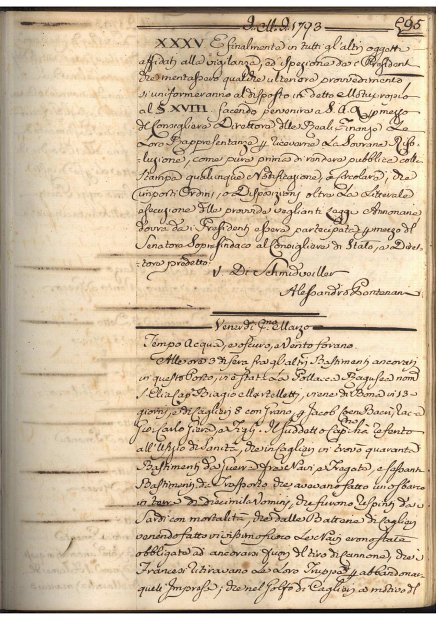 1793
695
XXXV E finalmente in tutti gl'altri oggetti
affidati alla vigilanza, ed ispezione de' Presidenti
che meritassero qualche ulteriore provvedimento
si uniformeranno al disposto in detto Motuproprio
al § XVIII. facendo pervenire a S.A.R. p mezzo
del Consigliere Direttore delle Reali Finanze Le
Loro Rappresentanze p riceverne Le Sovrane Riso-
luzione, come pure prima di rendere pubblice colle
Stampe qualunque Notificazione, o circolare, che
importi Ordini, o Disposizioni oltre La Litterale
esecuzione delle provvide veglianti Legge Annonarie
dovrà da i Presidenti essere partecipata p mezzo del
Senatore Soprasindaco al Consigliere di Stato, e Diret-
tore predetto
V. De Schmidveiller
Alessandro Pontenani
Venerdì p.mo Marzo
Tempo Acqua, e oscuro, e Vento forano
Alle ore 3 di sera fra gl'altri Bastimenti ancorati
in questo Porto, vi è stata La Pollacca Ragusea nom.
S. Elia Cap. Biagio Martelletti, viene di Bona in 13
giorni, e di Caglieri 8 con Grano, p Jacob Coen Bacri, Rac. a
Gio. Carlo Fierz, e Figli. Il suddetto Cap. ha referto
all'Ufizio di Sanità, che in Caglieri vi trovò quaranta
Bastimenti da Guerra fra Navi e Fregate, e sessanta
Bastimenti di Trasporto che avevano fatto uno sbarco
in terra di diecimila Uomini, che furono respinti da i
Sardi con mortalità, che dalle Batterie di Caglieri
venendo fatto vivissimo fuoco Le Navi erono state
obbligate ad ancorarsi fuori del tiro di cannone, che i
Francesi ritiravano Le Loro Truppe p abbandonar
quell'Impresa; che nel Golfo di Caglieri a motivo del